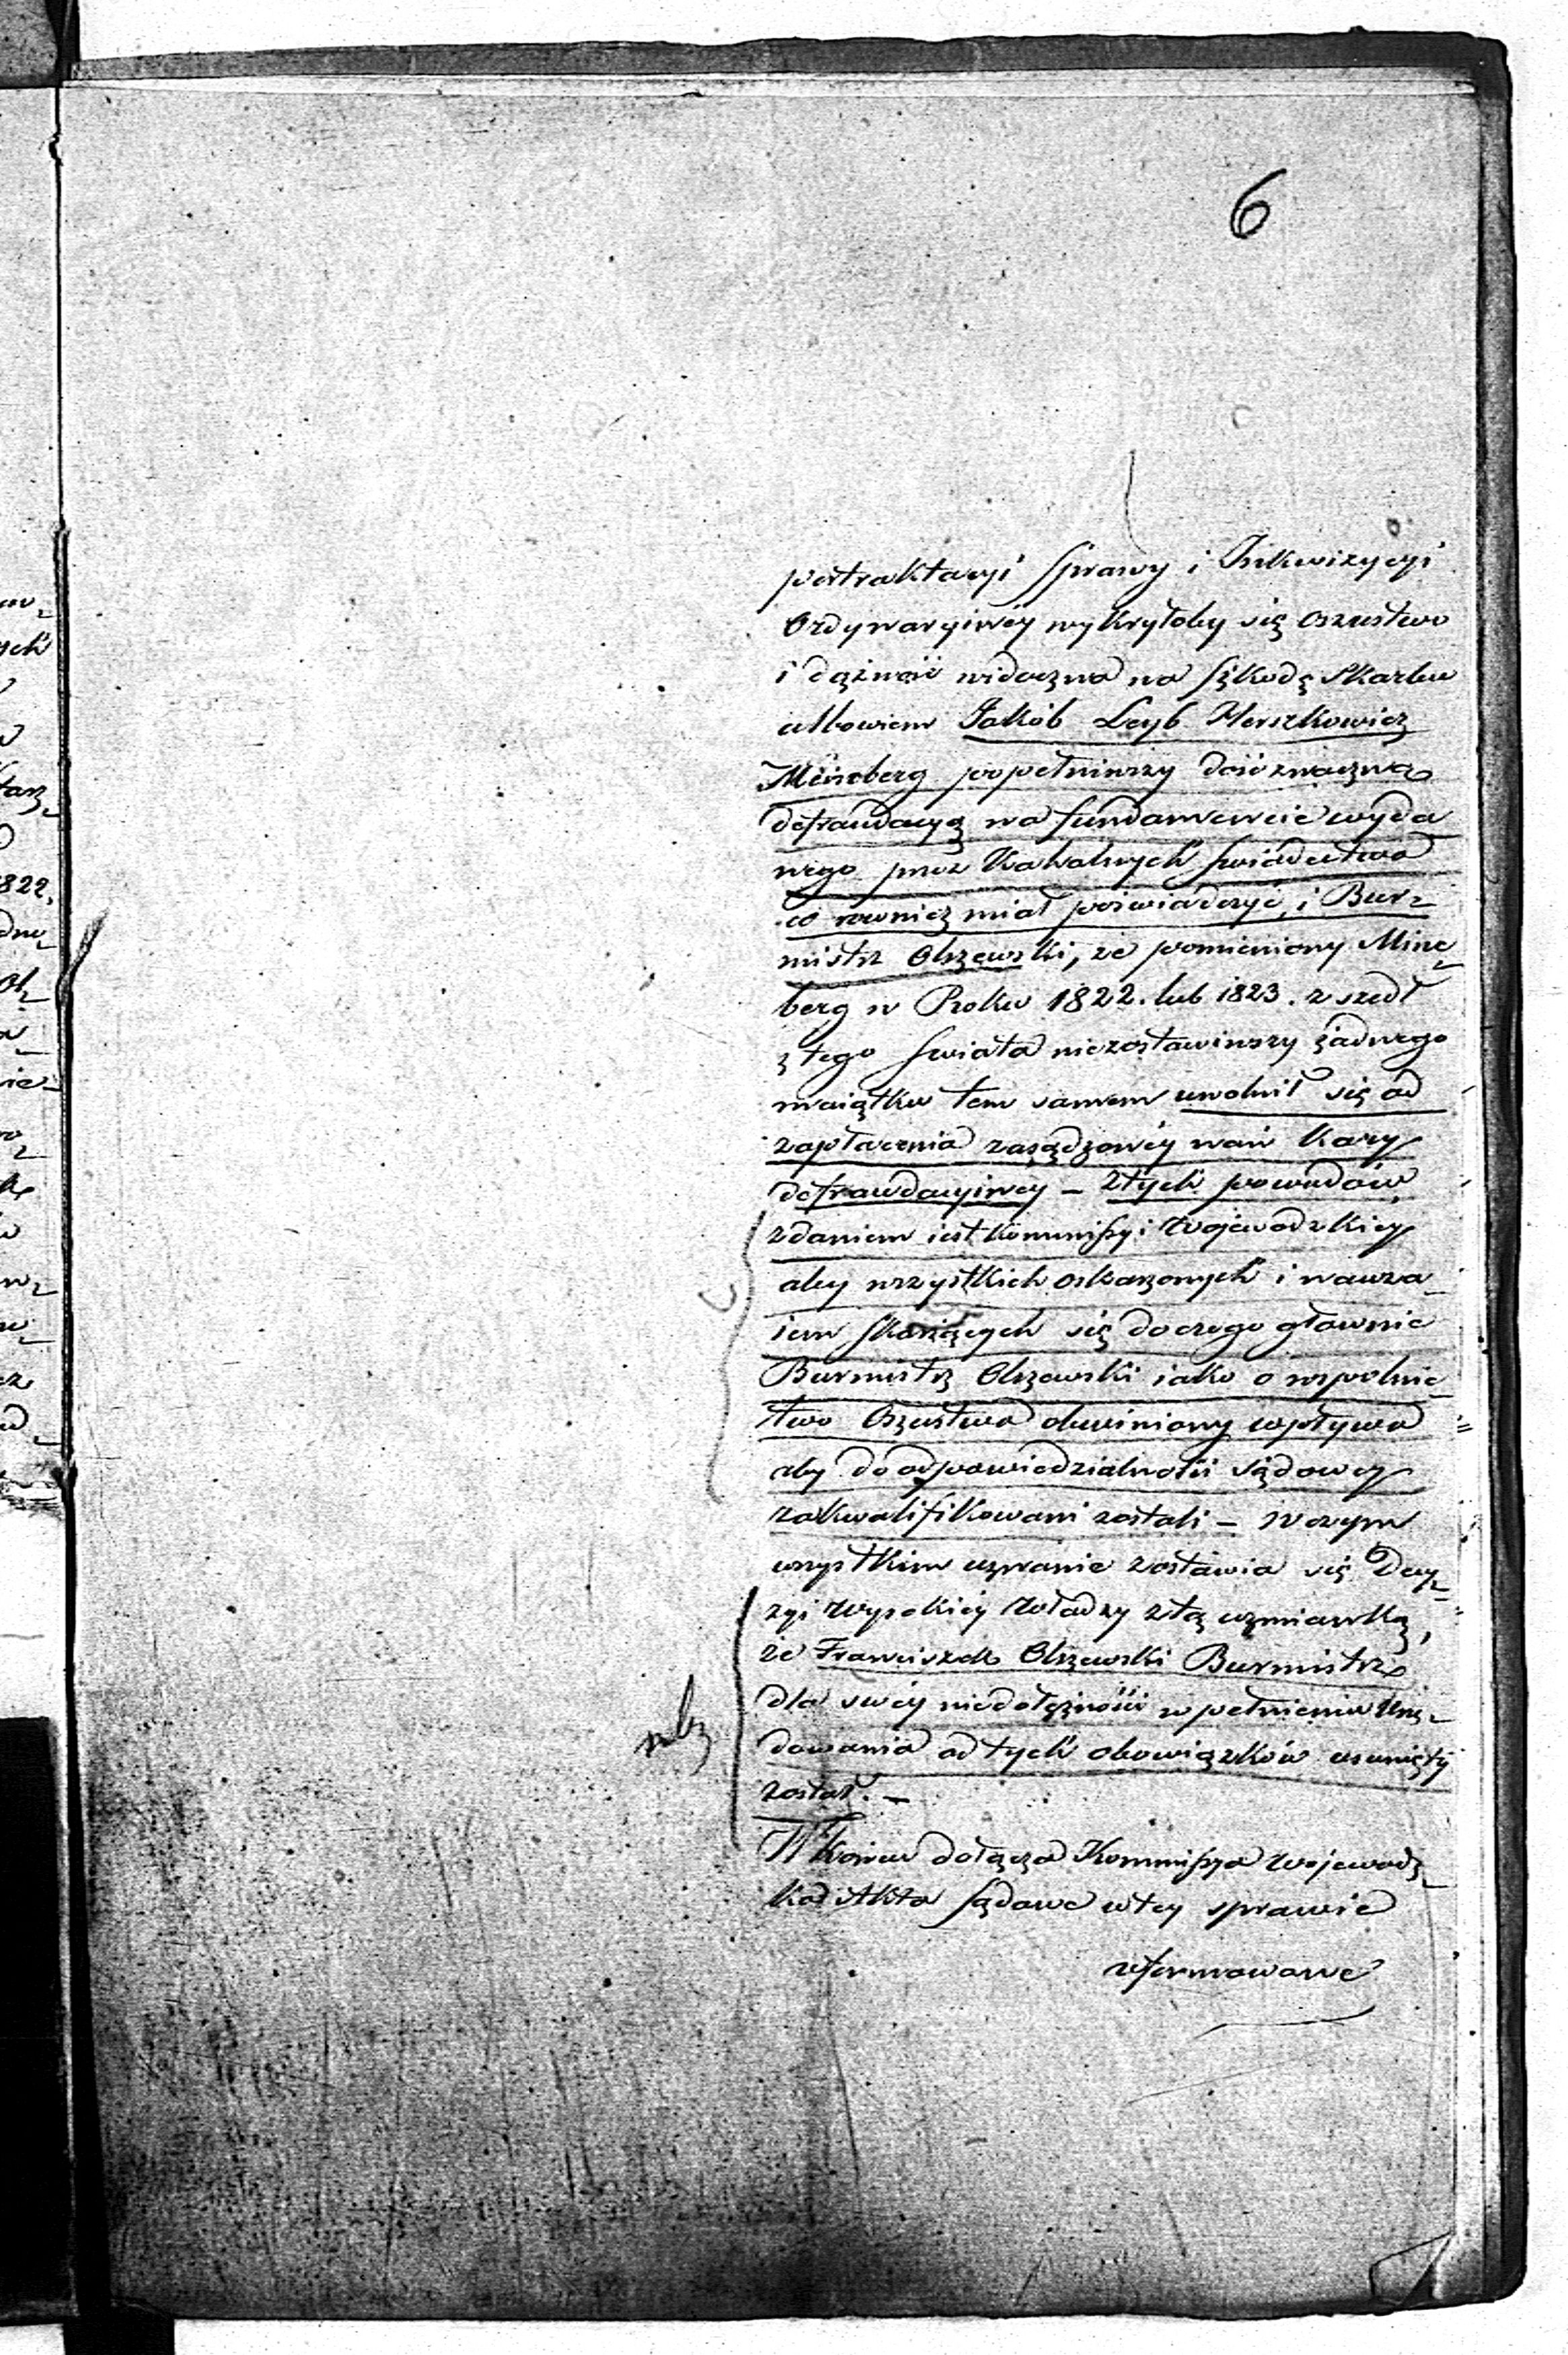 6
pertraktacyi Sprawy i Inkwizycyi
Ordynaryinéy wykrytoby się oszustwo
i dążność widoczna na Szkodę Skarbu
albowiem Jakób Leyb Herszkowicz
Mincberg popełniwszy dość znaczną
defraudacyą na fundamencie wyda
nego przez Kahalnych Swiadectwa
co rownież miał poświadczyć i Bur-
mistrz Olszewski, że pomieniony Minc-
berg w Roku 1822. lub 1823. zszedł
z tego Swiata niezostawiwszy żadnego
maiątku tem samem uwolnił się od
zapłacenia zasądzonéy nań Kary
defraudacyinéy – Ztych powodów
zdaniem iest Kommissyi Wojewodzkiey
aby wszystkich oskarzonych i nawza-
iem Skarżących się do czego głownie
Burmistrz Olszewski iako o wspolnic-
two Oszustwa obwiniony wpływa
aby do odpowiedzialności sądowey
zakwalifikowani zostali – W czym
wszystkim uznanie zostawia się Decy-
zyi Wysokiéy Władzy z tą wzmianką,
że Franciszek Olszewski Burmistrz
dla swéy niedołężności w pełnieniu Urzę-
dowania od tych obowiązków usunięty
został. –
W Końcu dołącza Kommissya Wojewodz-
ka Akta Sądowe w tey sprawie
uformowane